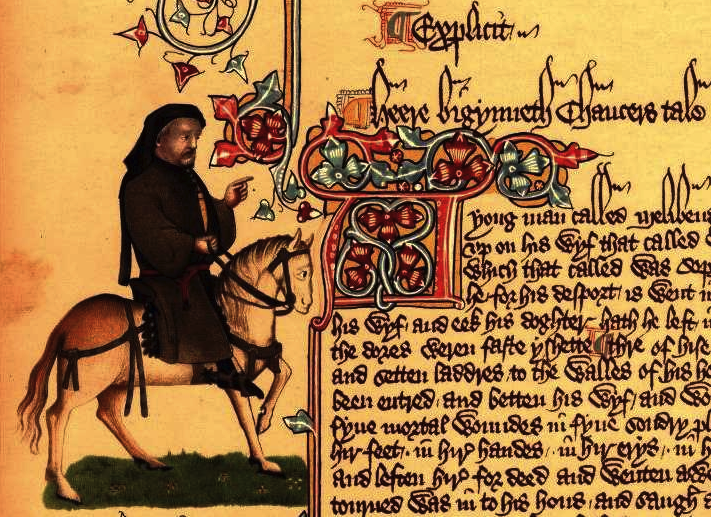 Explicit
Heere bigynneth Chaucers tale
yong man called Melibeus
vp on his wyf that called
which that called was
he for his desport is went
his wyf and eek his doghter hath he left
the dores weren faste yshette thre of hise
and setten laddres to the walles of his
been entred and betten his wyf and
fyue mortal woundes in fyue sondry
hir feet in hir handes in hir erys in
and leften hir for deed and wenten
tourned was in to his hous and saugh